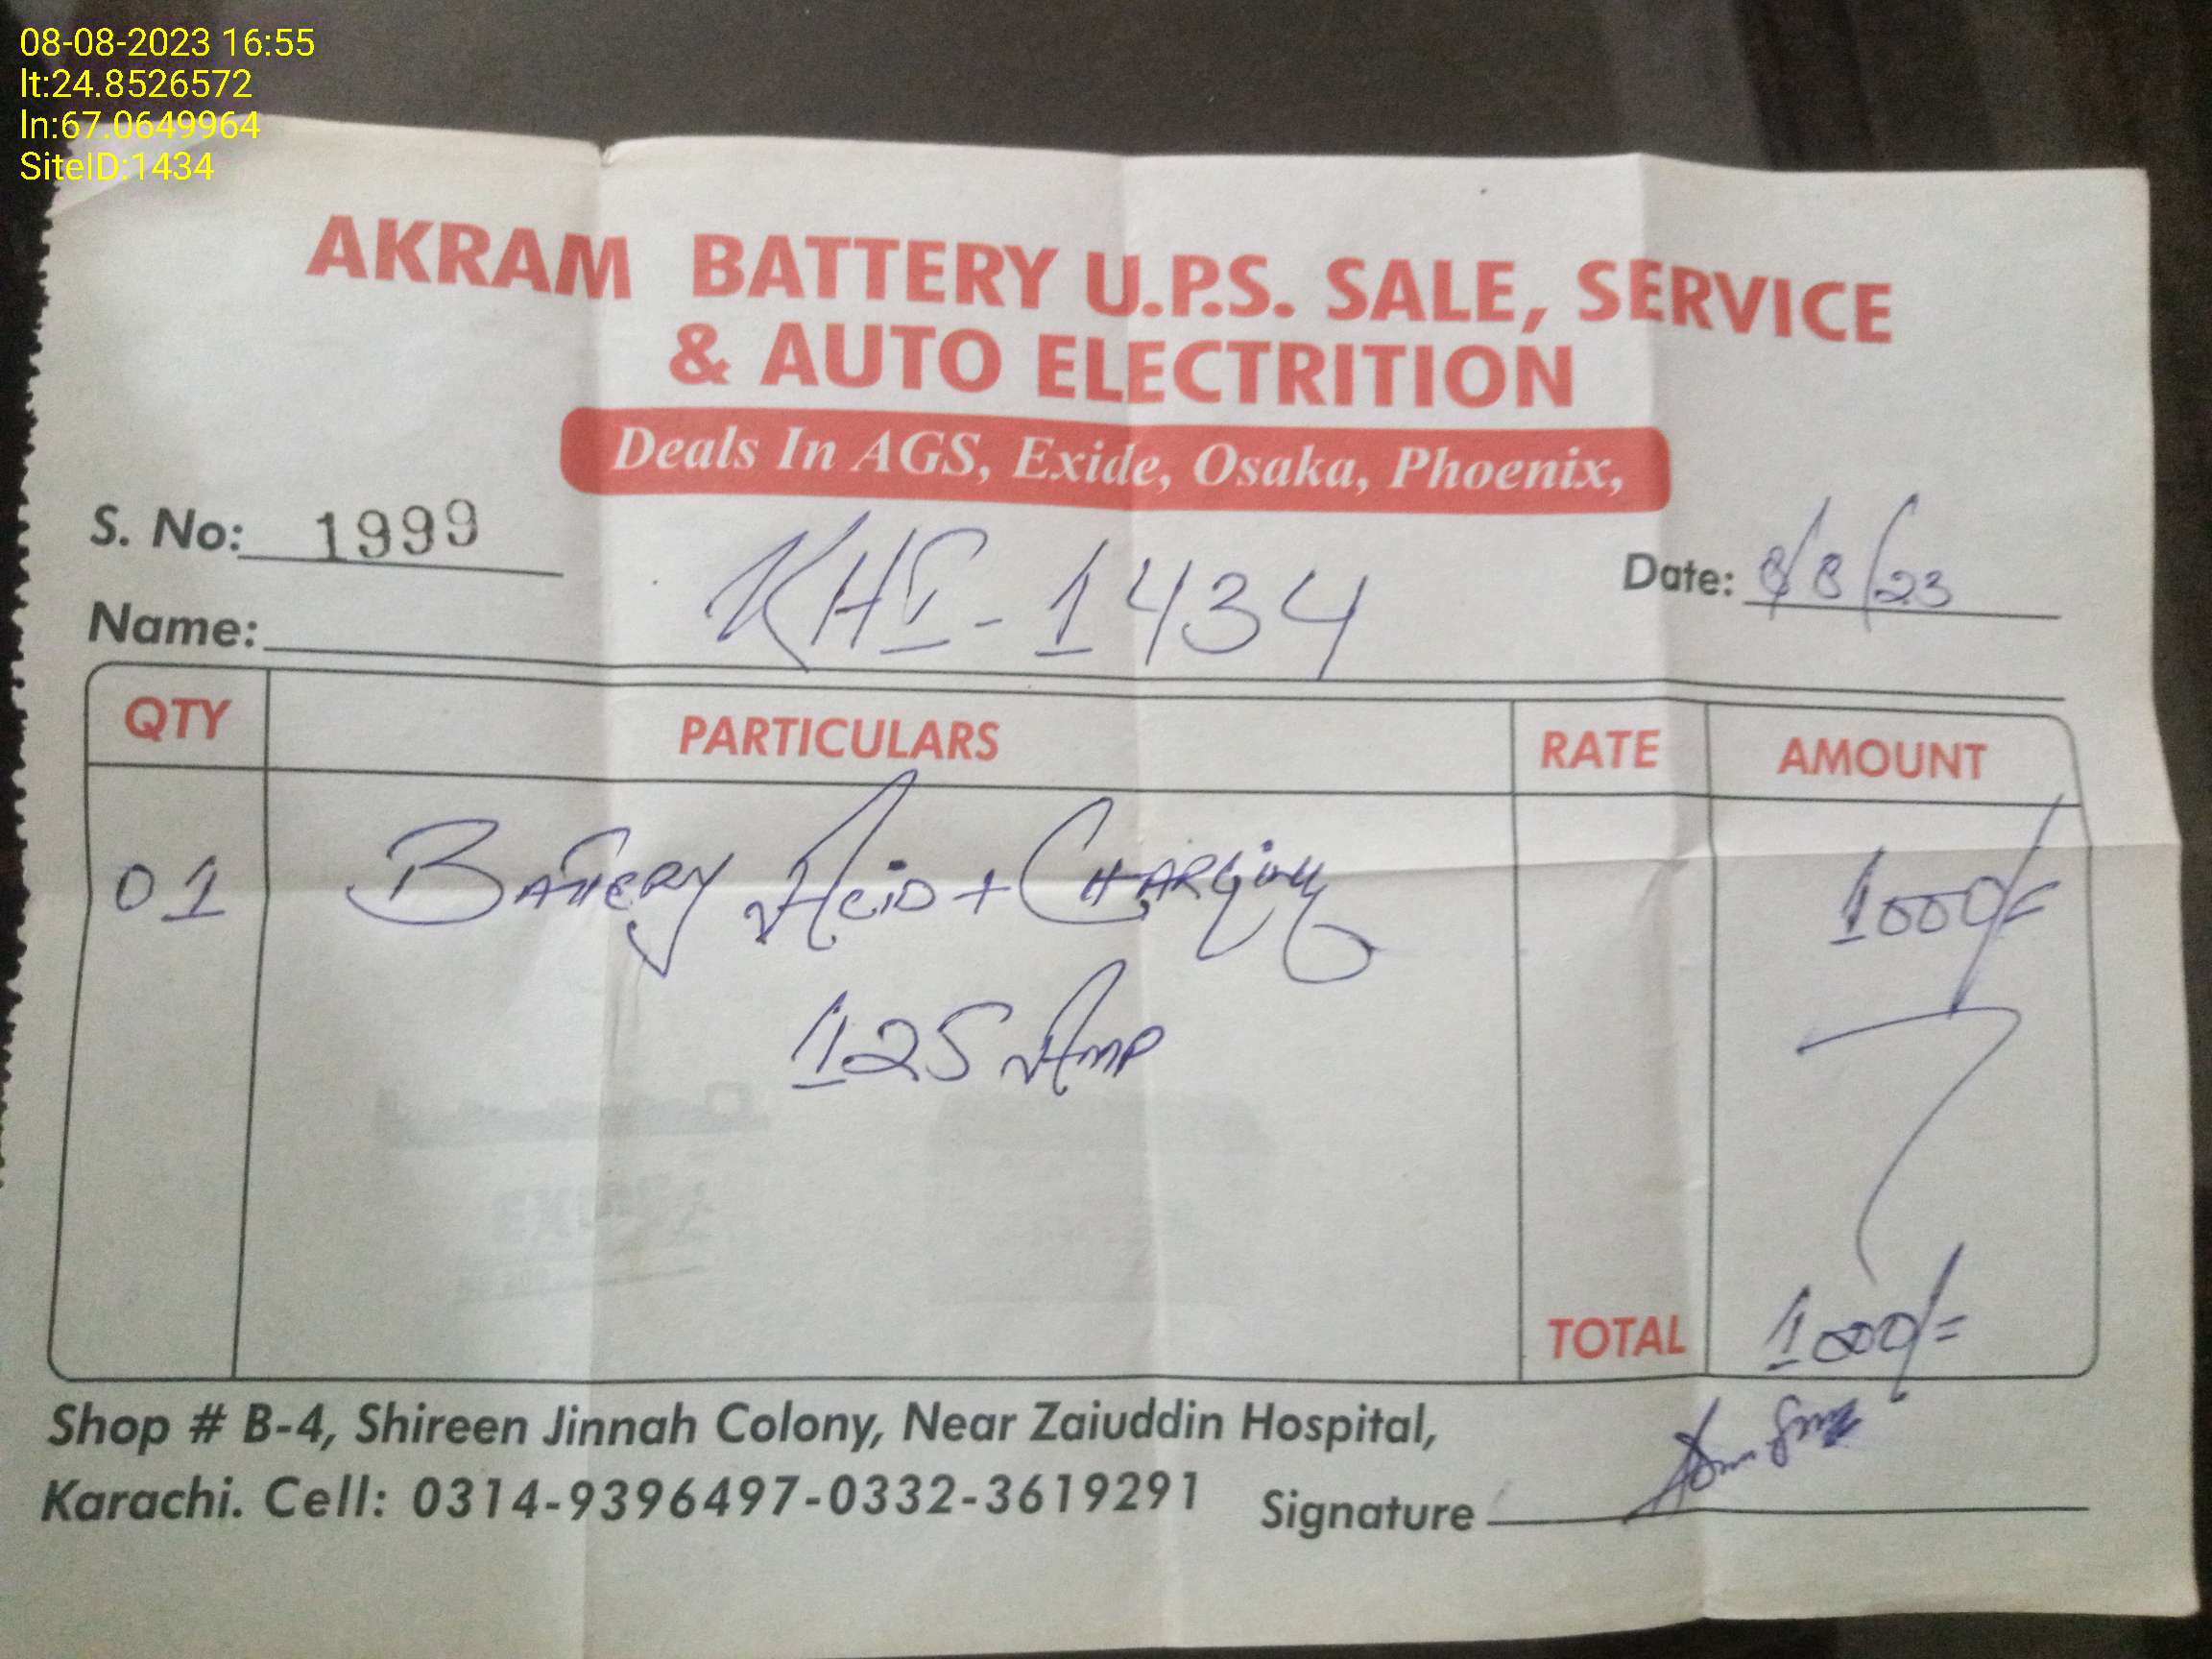 08-08-2023 16:55
lt:24.8526572
ln:67.0649964
SiteID:1434
AKRAM BATTERY U.P.S. SALE, SERVICE
& AUTO ELECTRITION
Deals In AGS, Exide, Osaka, Phoenix,
S. No: 1999
Date: 8/8/23
Name: KHI-1434
QTY PARTICULARS RATE AMOUNT
01 Battery Acid + Charging 1000/=
125 Amp
TOTAL 1000/=
Shop # B-4, Shireen Jinnah Colony, Near Zaiuddin Hospital,
Karachi. Cell: 0314-9396497-0332-3619291 Signature